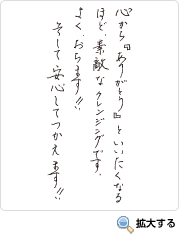 心から『ありがとう』といいたくなる
ほど、素敵なクレンジングです。
よく、おちます!!
そして安心してつかえます!!
拡大する